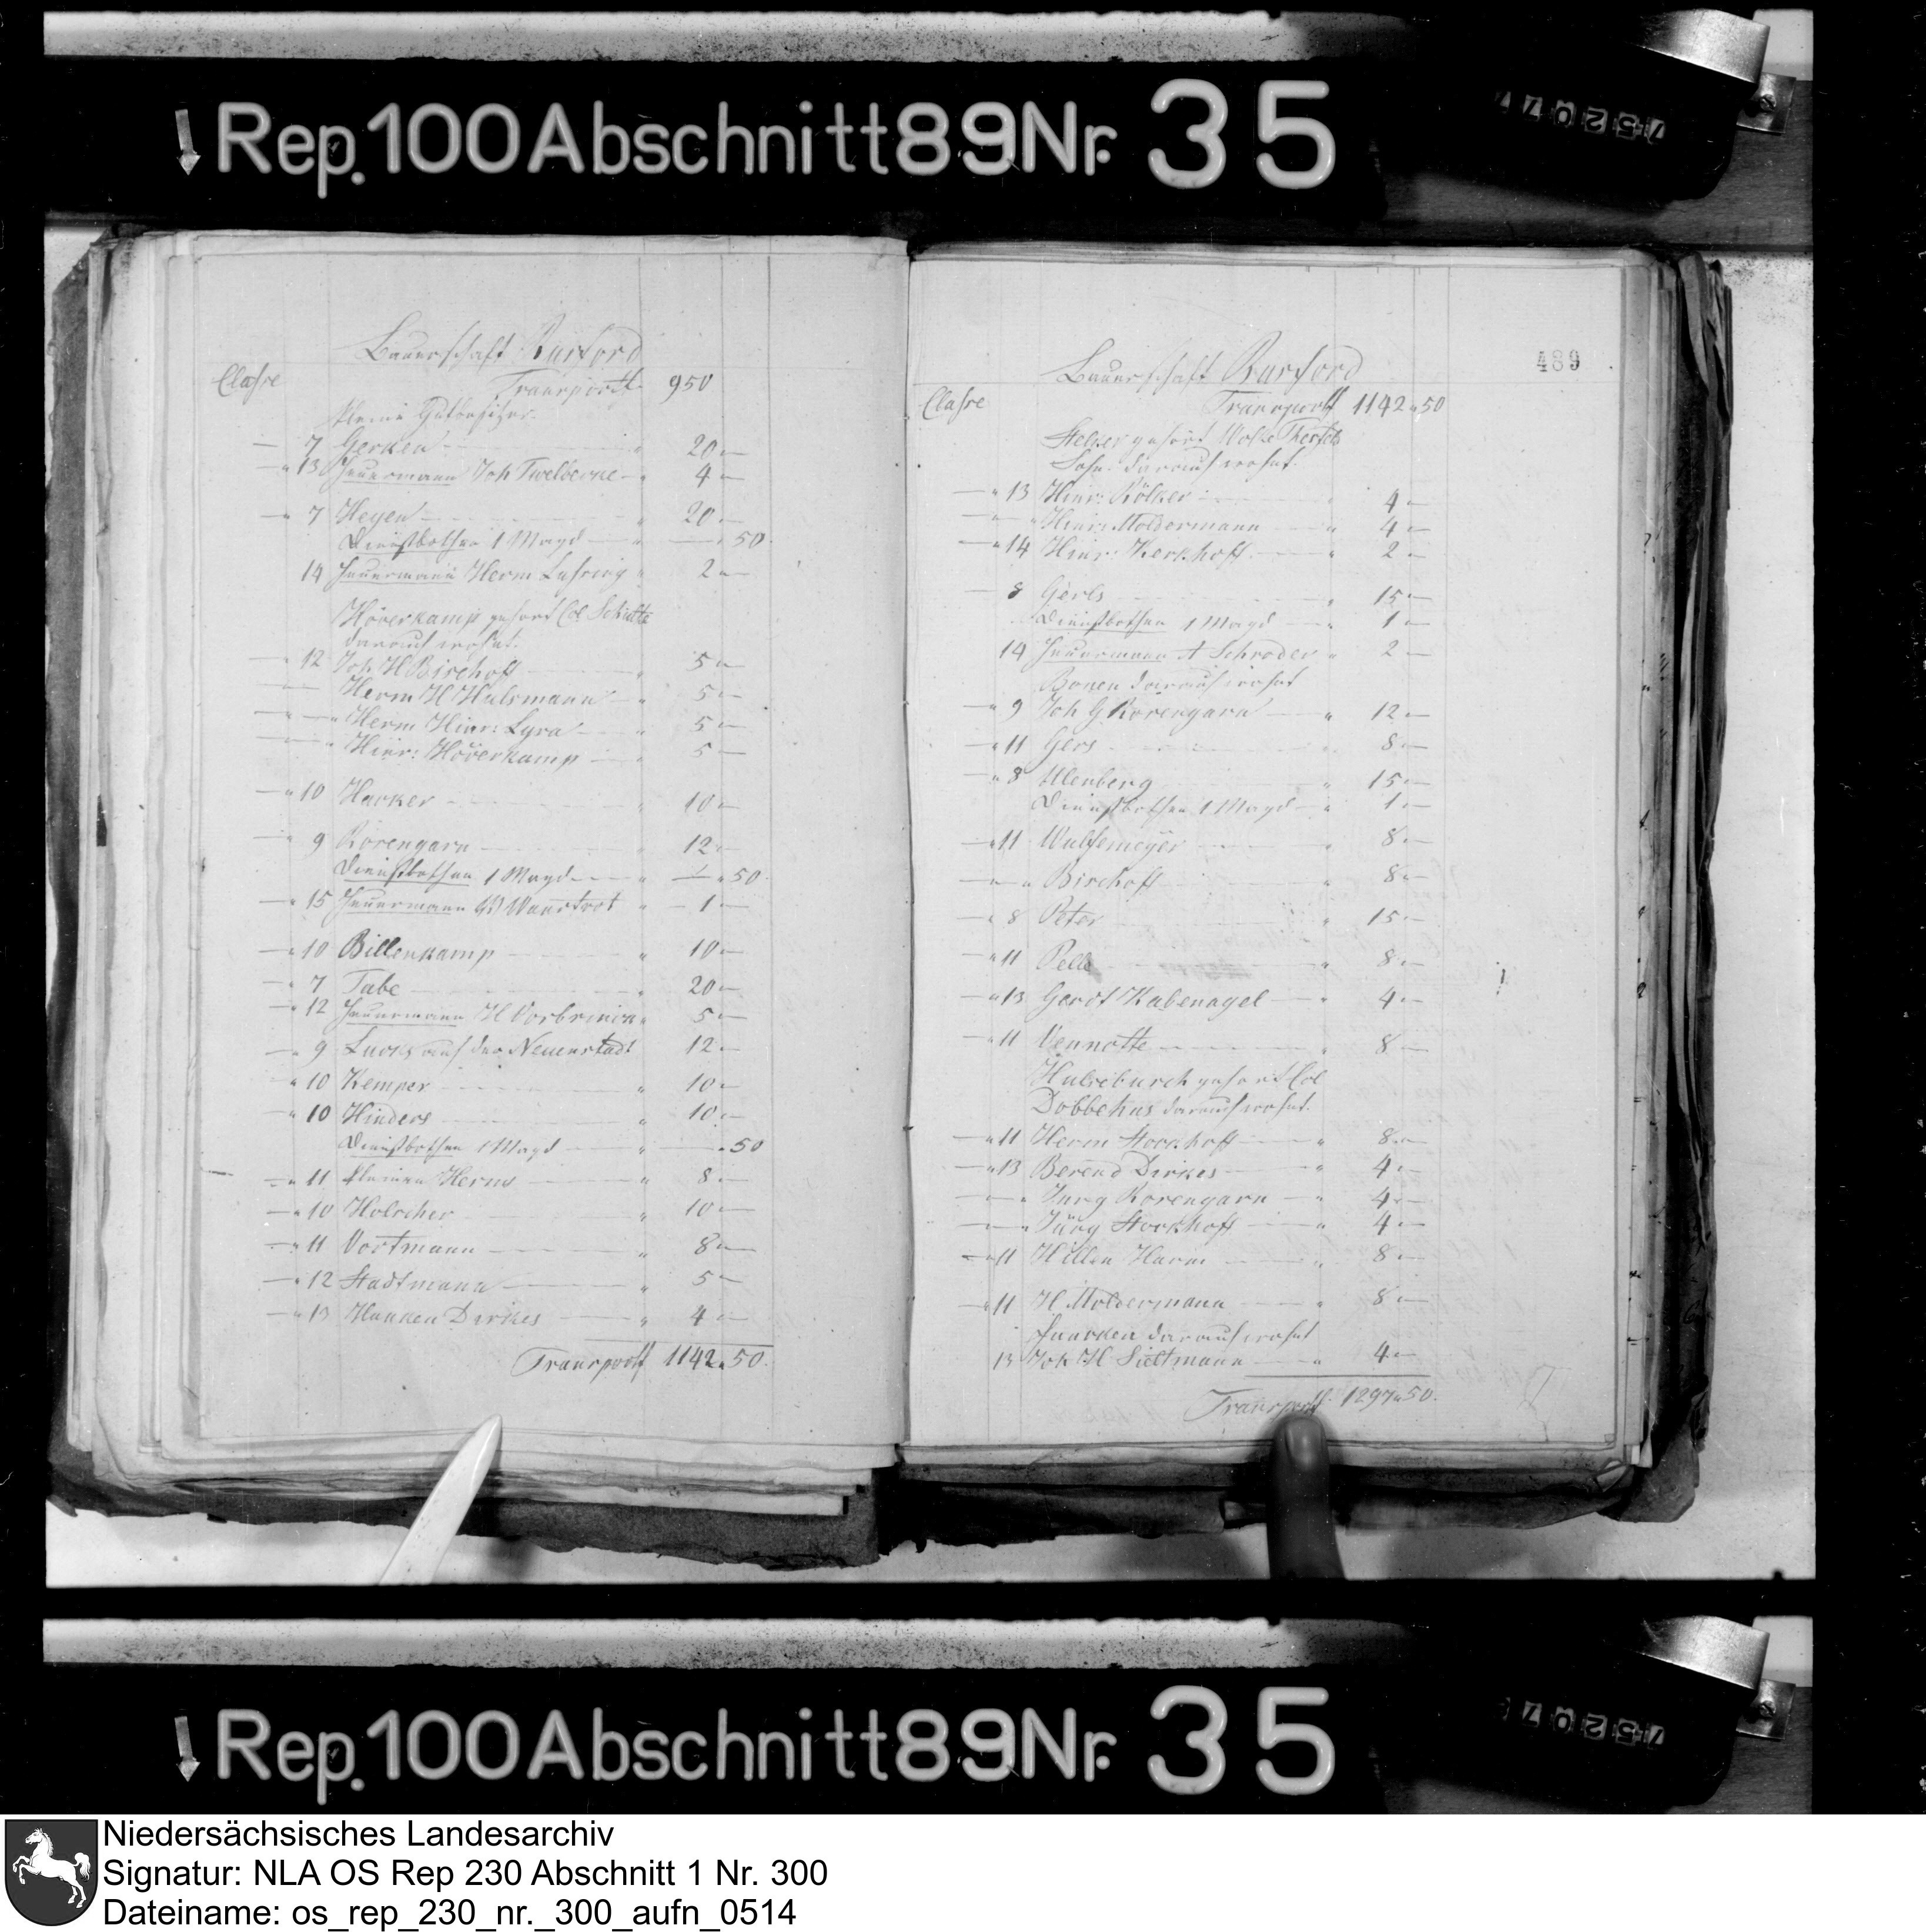 ↓ Rep. 100 Abschnitt 89 Nr. 35
75207
Bauerschaft Rusford
Classe
Transportt 950
kleine Gutbesitzer.
— 7 Gerken — " 20 " —
— " 13 Heuermann Joh Twelbecke — " 4 " —
— " 7 Heyen — " 20 " —
Dienstbothen 1 Magd — " — " 50.
14 Heuermann Herm Luhring " 2 " —
Höverkamp gehört Col Schulte
darauf wohnt.
— " 12 Joh H Birchoff — " 5 " —
— Herm H Hulsmann — " 5 " —
— " — " Herm Hinr: Lyra — " 5 " —
— " Hinr: Höverkamp — " 5 " —
— " 10 Harker — " 10 " —
— " 9 Rörengarn — " 12 " —
Dienstbothen 1 Magd — " — " 50.
— " 15 Heuermann Wannstrot " — 1 " —
— " 10 Billenkamp — " 10 " —
— " 7 Tabe — " 20 " —
— " 12 Heuermann H Vorbrinck " 5 " —
— " 9 auf der Neuenstadt 12 " —
" 10 Kemper — " 10 " —
— " 10 Hinders — " 10 " —
Dienstbothen 1 Magd — " — " 50
— " 11 kleinen Herms — " 8 " —
— " 10 Holscher — " 10 " —
— " 11 Vortmann — " 8 " —
— " 12 Stadtmann — " 5 " —
— " 13 Hanken Dirkes — " 4 " —
Transportt 1142 " 50.
489
Bauerschaft Rusford
Classe
Transportt 1142 " 50
gehört
Sohn darauf wohnt.
— " 13 Hinr: Rölker — " 4 " —
— " — " Hinr: Moldermann — " 4 " —
— " 14 Hinr: Kerkhoff — " 2 " —
8 Gerls — " 15 " —
Dienstbothen 1 Magd — " 1 " —
14 Heuermann A Schroder " 2 " —
Bonen darauf wohnt
— " 9 Joh G Rorengarn — " 12 " —
— " 11 Gers — " 8 " —
— " 8 Ulenberg — " 15 " —
Dienstbothen 1 Magd — " 1 " —
— " 11 Wulfemeyer — " 8 " —
— " — " Birchoff — " 8 " —
— " 8 Peter — " 15 " —
— " 11 Pelle — " 8 " —
— " 13 Gerdt Kabenagel — " 4 " —
— " 11 Vennotte — " 8 —
Hulseburch gehört Col
Dobbehus darauf wohnt.
— " 11 Herm Storkhoff — " 8 " —
— " 13 Berend Dirkes — " 4 " —
— " — " Jurg Rorengarn — " 4 " —
— " — " Jürg Storkhoff — " 4 " —
— " 11 Hillen Harm — " 8 " —
— " 11 H Moldermann — " 8 " —
darauf wohnt
13 Joh H Sieltmann — " 4 " —
Transportt 1297 " 50.
↓ Rep. 100 Abschnitt 89 Nr. 35
75207
Niedersächsisches Landesarchiv
Signatur: NLA OS Rep 230 Abschnitt 1 Nr. 300
Dateiname: os_rep_230_nr._300_aufn_0514